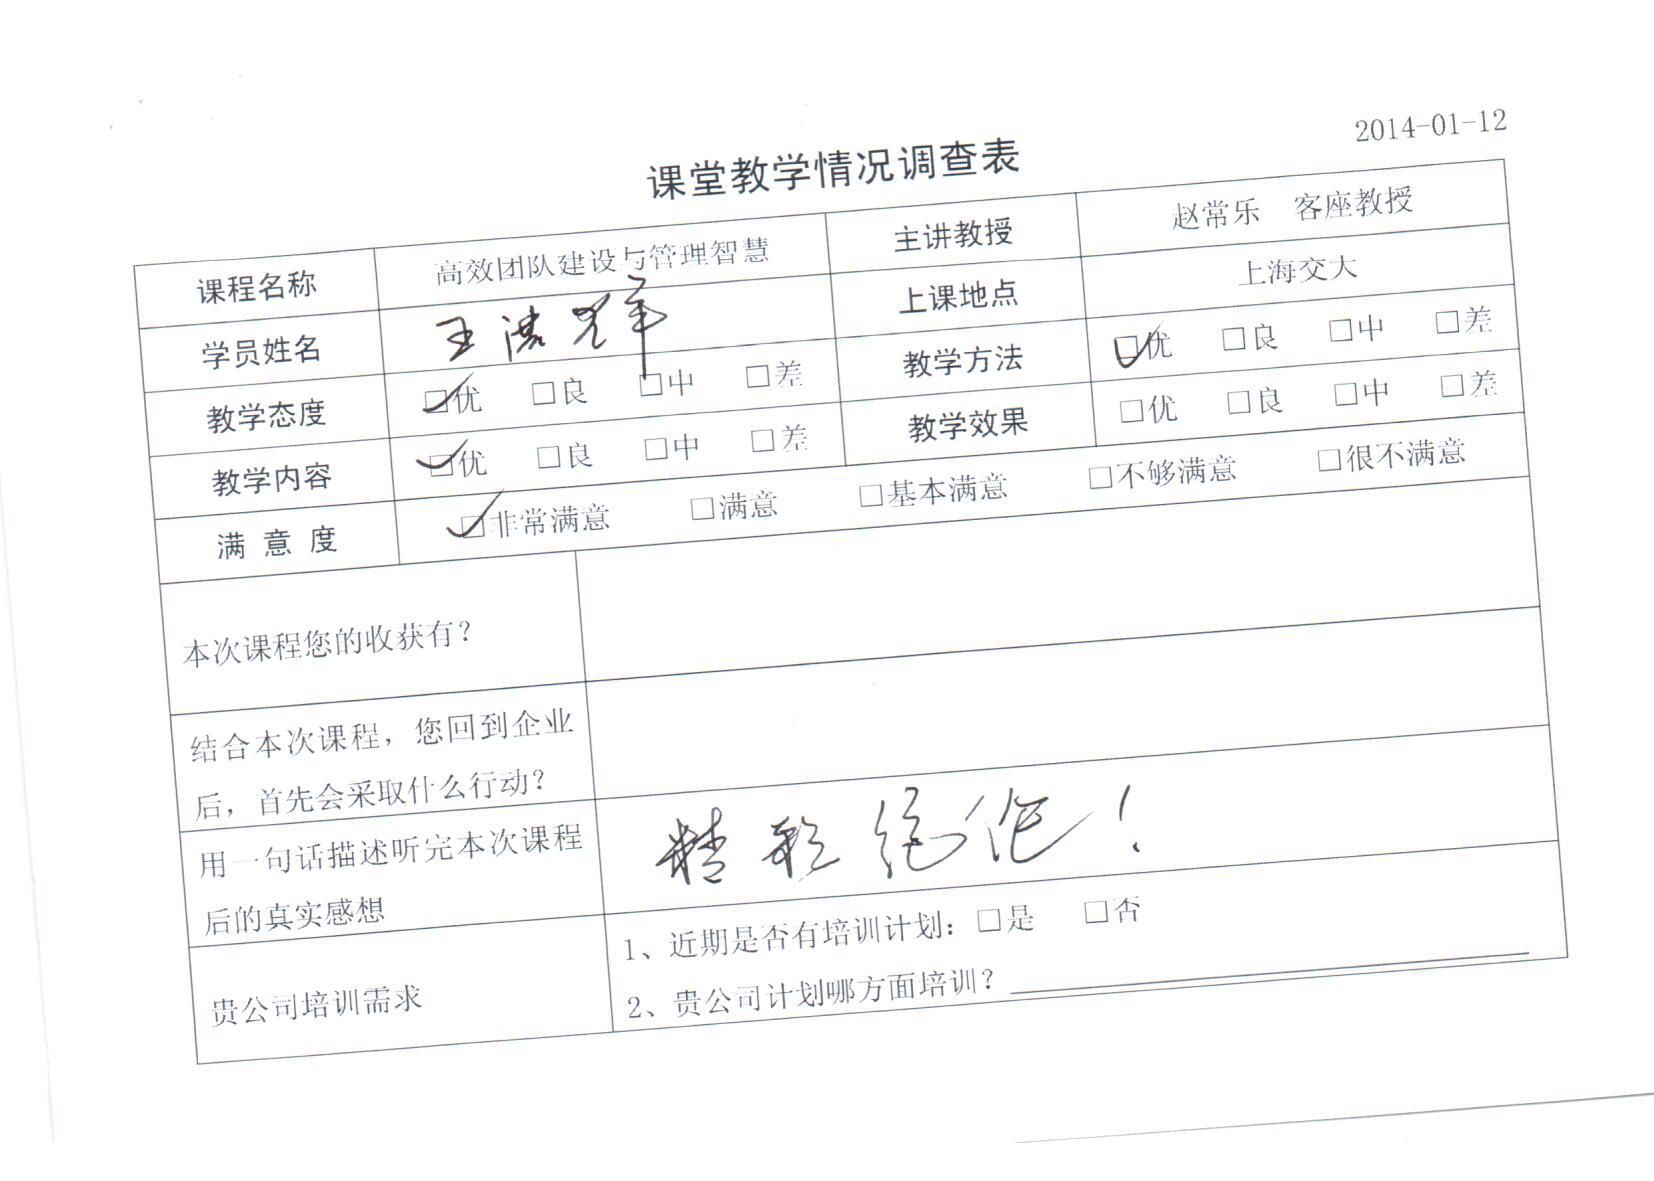 2014-01-12
课堂教学情况调查表
课程名称 高效团队建设与管理智慧 主讲教授 赵常乐 客座教授
学员姓名 王 上课地点 上海交大
教学态度 ☑优 □良 □中 □差 教学方法 ☑优 □良 □中 □差
教学内容 ☑优 □良 □中 □差 教学效果 □优 □良 □中 □差
满 意 度 ☑非常满意 □满意 □基本满意 □不够满意 □很不满意
本次课程您的收获有？
结合本次课程，您回到企业
后，首先会采取什么行动？
用一句话描述听完本次课程
后的真实感想
精彩绝伦！
贵公司培训需求
1、近期是否有培训计划：□是 □否
2、贵公司计划哪方面培训？